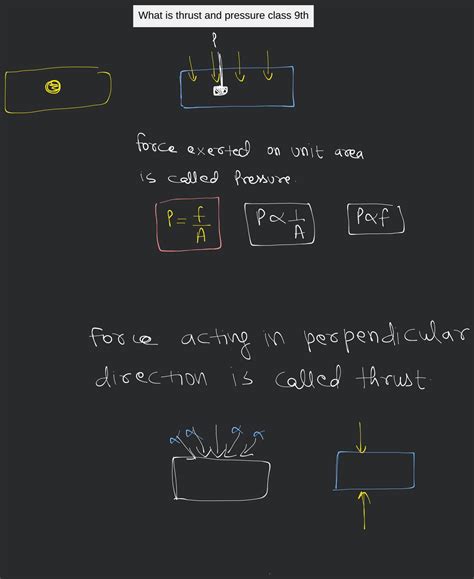 What is thrust and pressure class 9th
P
force exerted on unit area
is called Pressure.
P = f/A
P ∝ 1/A
P ∝ f
Force acting in perpendicular
direction is called thrust.
α α α α